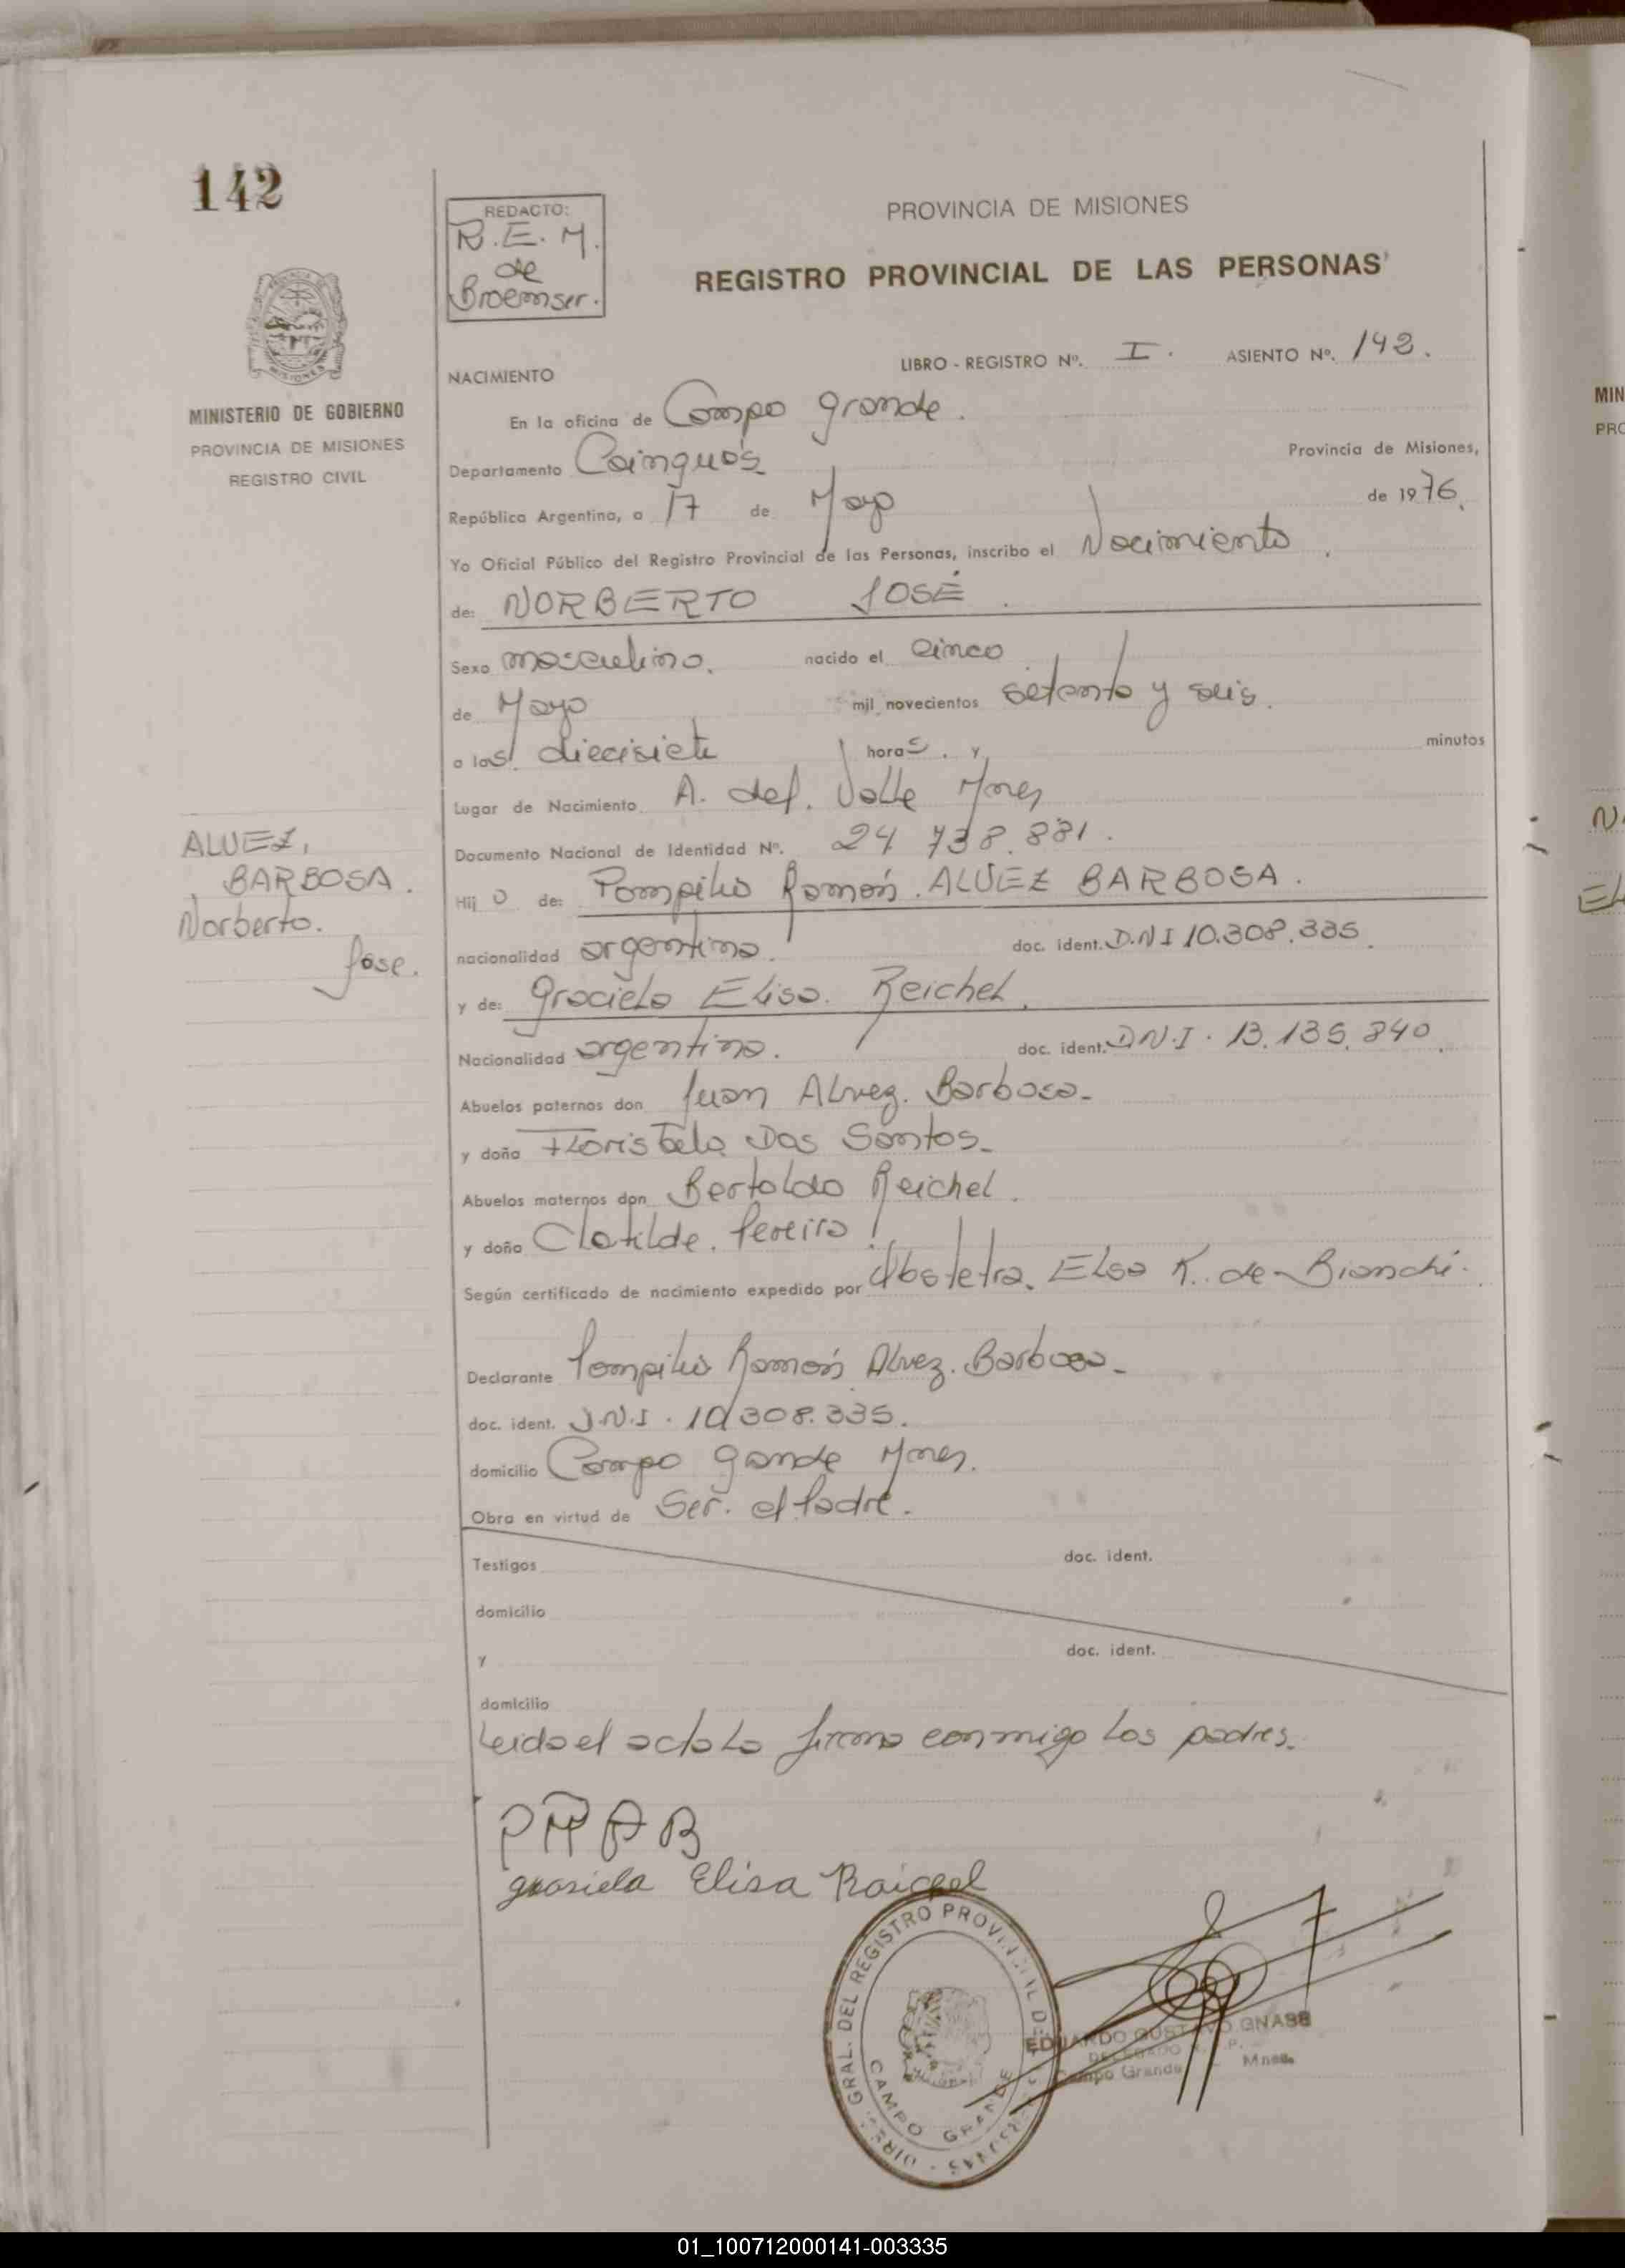 142
REDACTO:
R.E.M.
de
Broemser.
PROVINCIA DE MISIONES
REGISTRO PROVINCIAL DE LAS PERSONAS
MINISTERIO DE GOBIERNO
PROVINCIA DE MISIONES
REGISTRO CIVIL
LIBRO - REGISTRO Nº. I. ASIENTO Nº. 142.
NACIMIENTO
En la oficina de Campo Grande.
Departamento Cainguás Provincia de Misiones,
República Argentina, a 17 de Mayo de 1976.
Yo Oficial Público del Registro Provincial de las Personas, inscribo el Nacimiento.
de: NORBERTO JOSÉ.
Sexo masculino. nacido el cinco
de Mayo mil novecientos setenta y seis.
a las diecisiete horas. y minutos
Lugar de Nacimiento A. del. Valle Mnes
Documento Nacional de Identidad Nº. 24 738.881.
ALVEZ,
BARBOSA.
Norberto.
Jose.
Hij o de: Pompilio Ramón. ALVEZ BARBOSA.
nacionalidad argentina. doc. ident. D.N I 10.308.335.
y de: Graciela Elisa. Reichel.
Nacionalidad argentina. doc. ident. D.N.I. 13.135.840.
Abuelos paternos don Juan Alvez. Barbosa-
y doña Floristela Dos Santos-
Abuelos maternos don Bertoldo Reichel.
y doña Clotilde. Pereira
Según certificado de nacimiento expedido por Obstetra. Elsa K. de-Bianchi.
Declarante Pompilio Ramón Alvez. Barbosa-
doc. ident. D.N.I. 10.308.335.
domicilio Campo Gande Mnes.
Obra en virtud de Ser. el Padre.
Testigos doc. ident.
domicilio
y doc. ident.
domicilio
Leida el acta la firma conmigo los padres.
PRAB
grasiela Elisa Raichel
DIREC. GRAL. DEL REGISTRO PROVINCIAL DE LAS PERSONAS
CAMPO GRANDE
EDUARDO GUSTAVO GNASS
DELEGADO
Campo Grande Mnes.
MIN
PRO
01_100712000141-003335